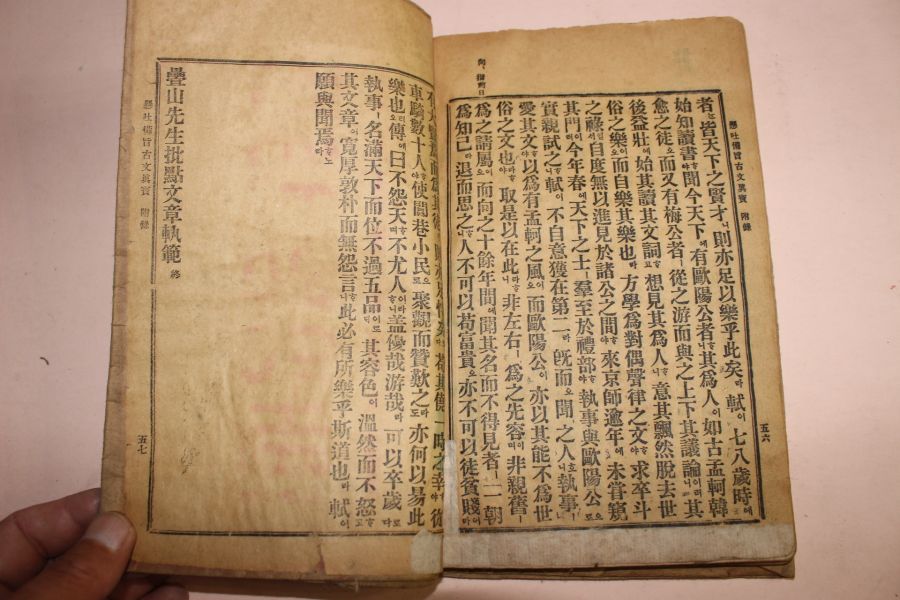 向、指前日
懸吐備旨古文眞寶 附錄 五六
者는皆天下之賢才니則亦足以樂乎此矣라 軾이七八歲時에
始知讀書ᄒᆞ야聞今天下에有歐陽公者ᄒᆞ니其爲人이如古孟軻韓
愈之徒오而又有梅公者ㅣ從之游而與之上下其議論이러니其
後益壯에始其讀其文詞ᄒᆞ고想見其爲人ᄒᆞ니意其飄然脫去世
俗之樂而自樂其樂也라方學爲對偶聲律之文ᄒᆞ야求卒斗
之祿ᄒᆞᆯᄉᆡ自度無以進見於諸公之間ᄒᆞ야來京師逾年에未嘗窺
其門이러니今年春에天下之士ㅣ羣至於禮部ᄒᆞ야執事與歐陽公으로
實親試之ᄒᆞ니軾이不自意獲在第二러니旣而오聞之人호니執事ㅣ
愛其文ᄒᆞ야以爲有孟軻之風이오而歐陽公이亦以其能不爲世
俗之文也라ᄒᆞ야取是以在此ᄒᆞ니非左右ㅣ爲之先容이며非親舊ㅣ
爲之請屬이오而向之十餘年間에聞其名而不得見者ㅣ一朝
爲知己라退而思之ᄒᆞ니人不可以苟富貴오亦不可以徒貧賤이라
苟其僥一時之幸ᄒᆞ야從
車騎數十人ᄒᆞ야使閭巷小民으로聚觀而贊歎之라도亦何以易此
樂也리오傳에曰不怨天ᄒᆞ며不尤人이라ᄒᆞ니盖優哉游哉라可以卒歲로다
執事ㅣ名滿天下而位不過五品이로ᄃᆡ其容色이溫然而不怒ᄒᆞ고
其文章이寬厚敦朴而無怨言ᄒᆞ니此必有所樂乎斯道也라軾이
願與聞焉ᄒᆞ노라
疊山先生批點文章軌範 終
懸吐備旨古文眞寶 附錄 五七